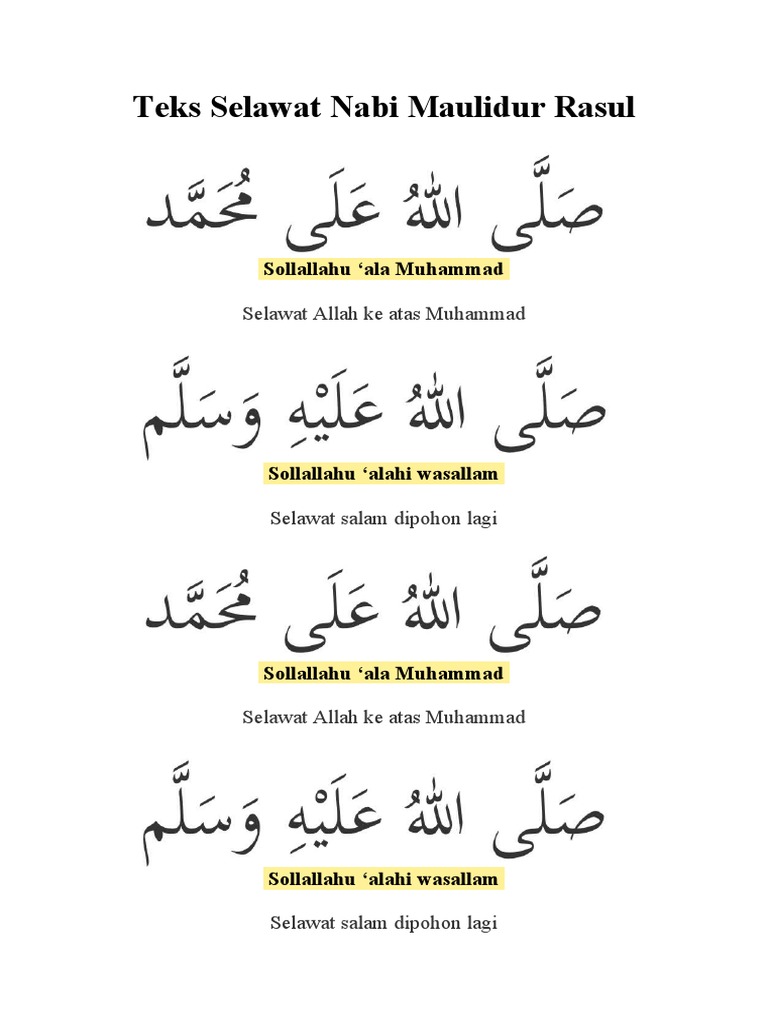 Teks Selawat Nabi Maulidur Rasul
صَلَّى اللهُ عَلَى مُحَمَّد
Sollallahu ‘ala Muhammad
Selawat Allah ke atas Muhammad
صَلَّى اللهُ عَلَيْهِ وَسَلَّم
Sollallahu ‘alahi wasallam
Selawat salam dipohon lagi
صَلَّى اللهُ عَلَى مُحَمَّد
Sollallahu ‘ala Muhammad
Selawat Allah ke atas Muhammad
صَلَّى اللهُ عَلَيْهِ وَسَلَّم
Sollallahu ‘alahi wasallam
Selawat salam dipohon lagi